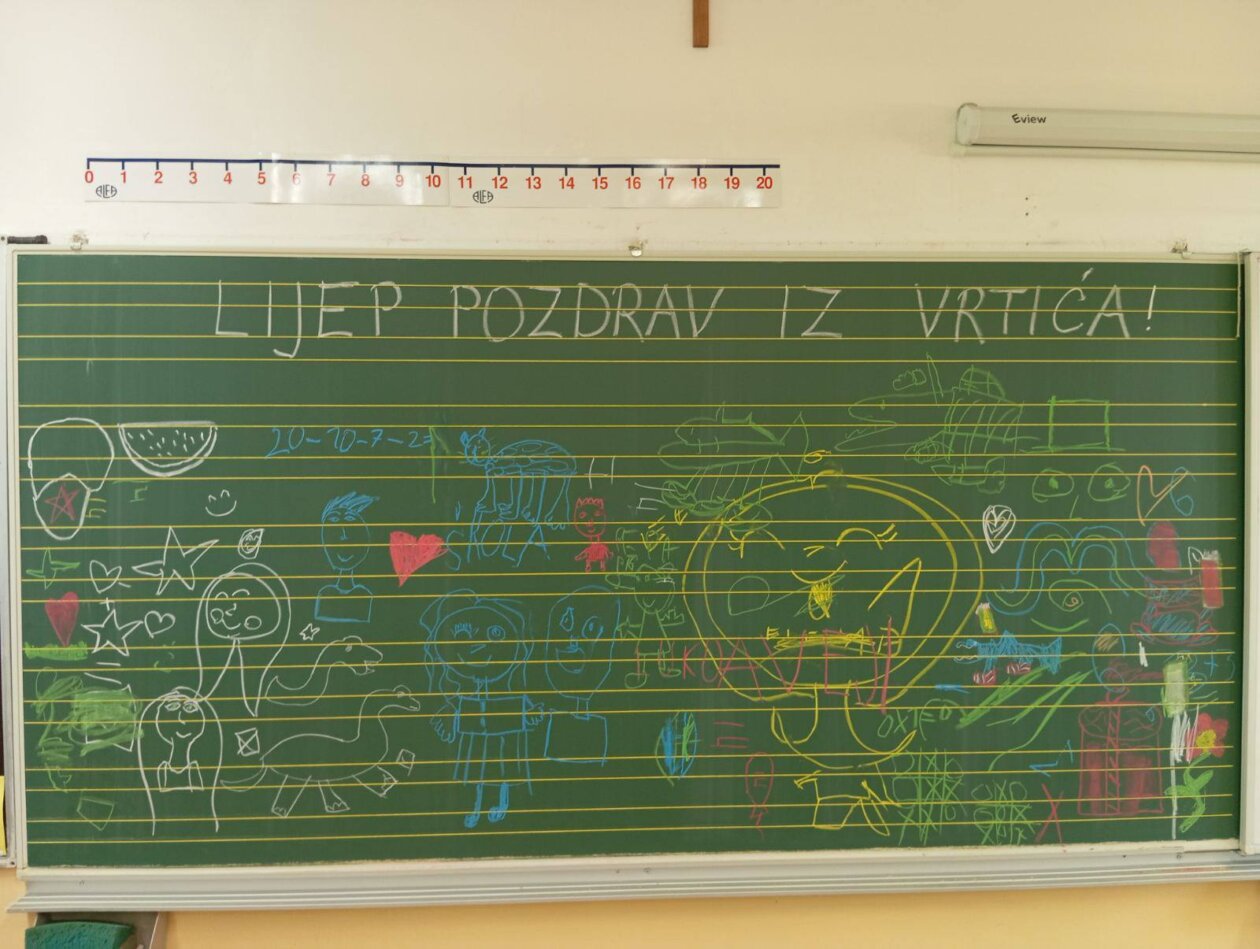 Eview
0 1 2 3 4 5 6 7 8 9 10 11 12 13 14 15 16 17 18 19 20
ALFA ALFA
LIJEP POZDRAV IZ VRTIĆA!
20-10-7-2=
ŠKOLA